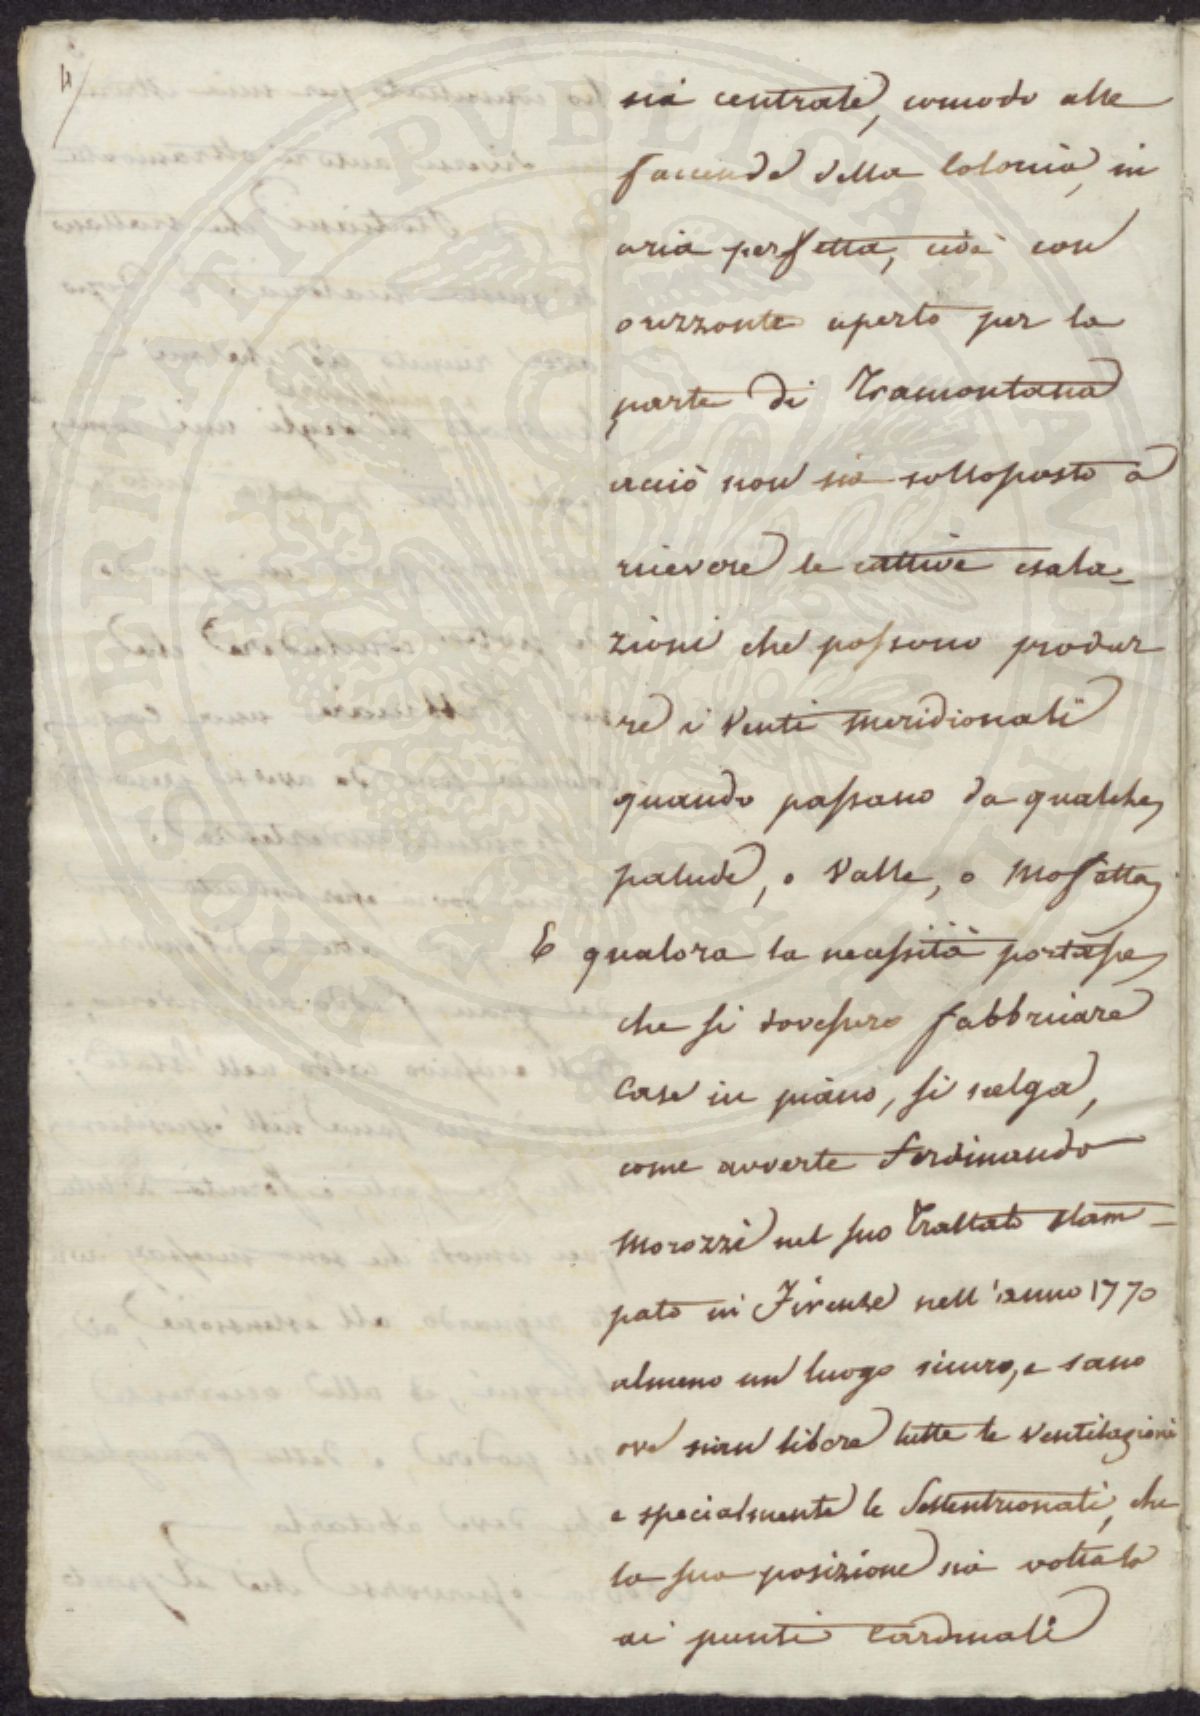 4
sia centrale, comodo alle
faccende della Colonia, in
aria perfetta, cioè con
orizzonte aperto per la
parte di Tramontana
acciò non sia sottoposto a
ricevere le cattive esala-
zioni che possono produr
re i Venti Meridionali
quando passano da qualche
palude, o Valle, o Mofetta
E qualora la necessità portasse
che si dovessero fabbricare
Case in piano, si scelga,
come avverte Ferdinando
Morozzi nel suo Trattato stam-
pato in Firenze nell'anno 1770
almeno un luogo sicuro, e sano
ove sien libere tutte le Ventilazioni
e specialmente le Settentrionali, che
la sua posizione sia voltata
ai punti Cardinali
PROSPERITATI PVBLICAE AVGENDAE